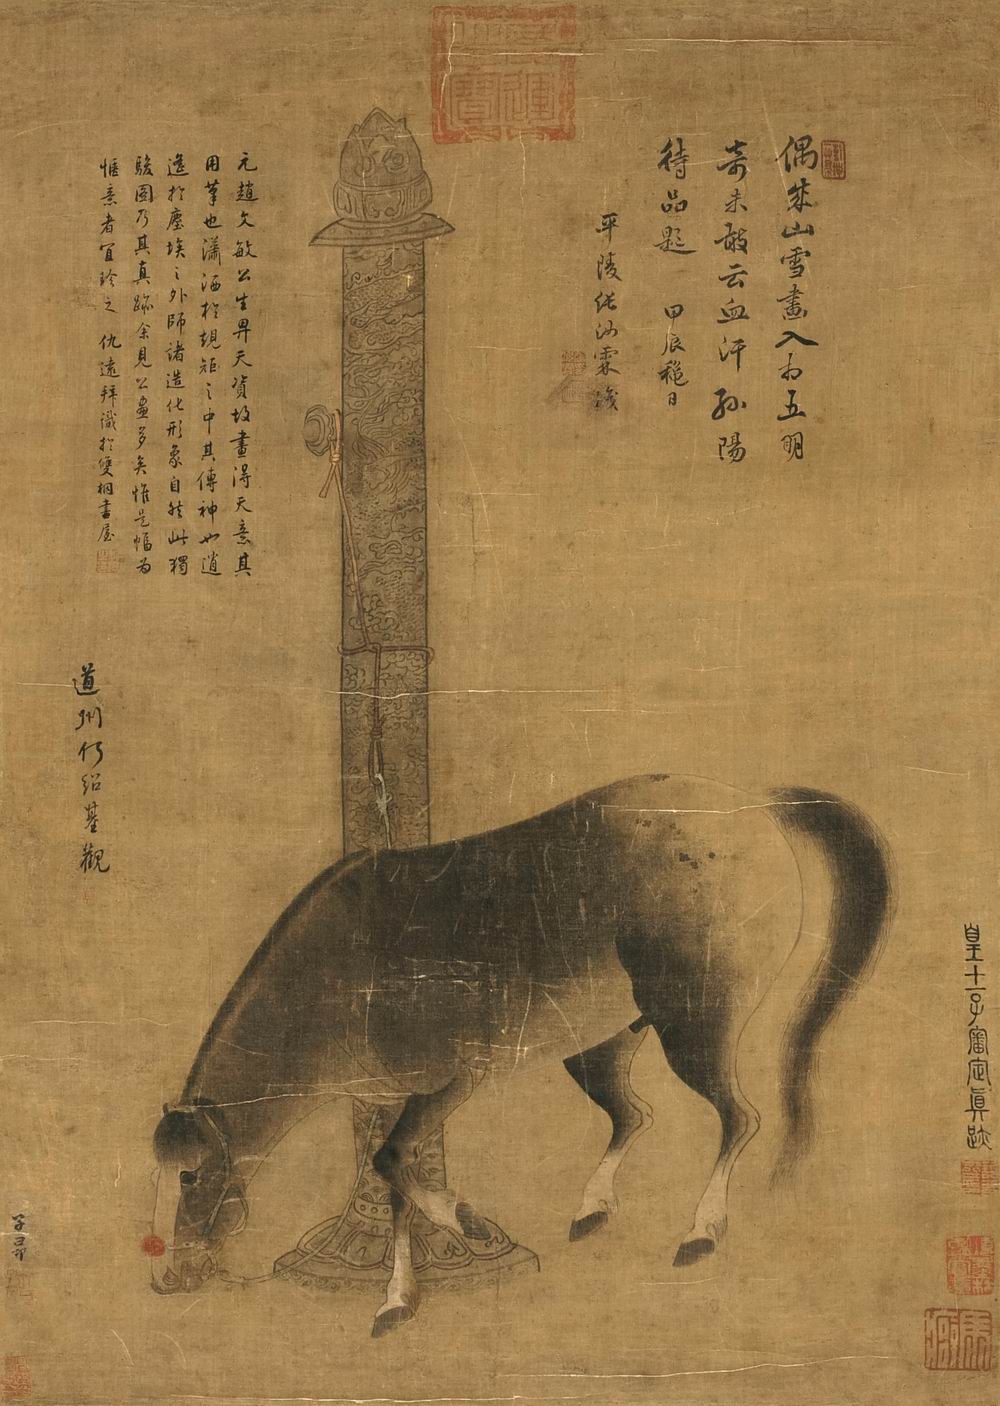 偶來山雪畫入為五明
奇未敢云血汗孫陽
待品題 甲辰
平陵
元趙文敏公生畀天資故畫得天意其
用筆也瀟洒於規矩之中其傳神也逍
遙於塵埃之外師諸造化形象自然此獨
駿圖乃其真跡余見公畫多矣惟是幅為
愜意者宜珍之 仇遠拜識於雙桐書屋
道州何紹基觀
皇十一子審定真跡
子昂